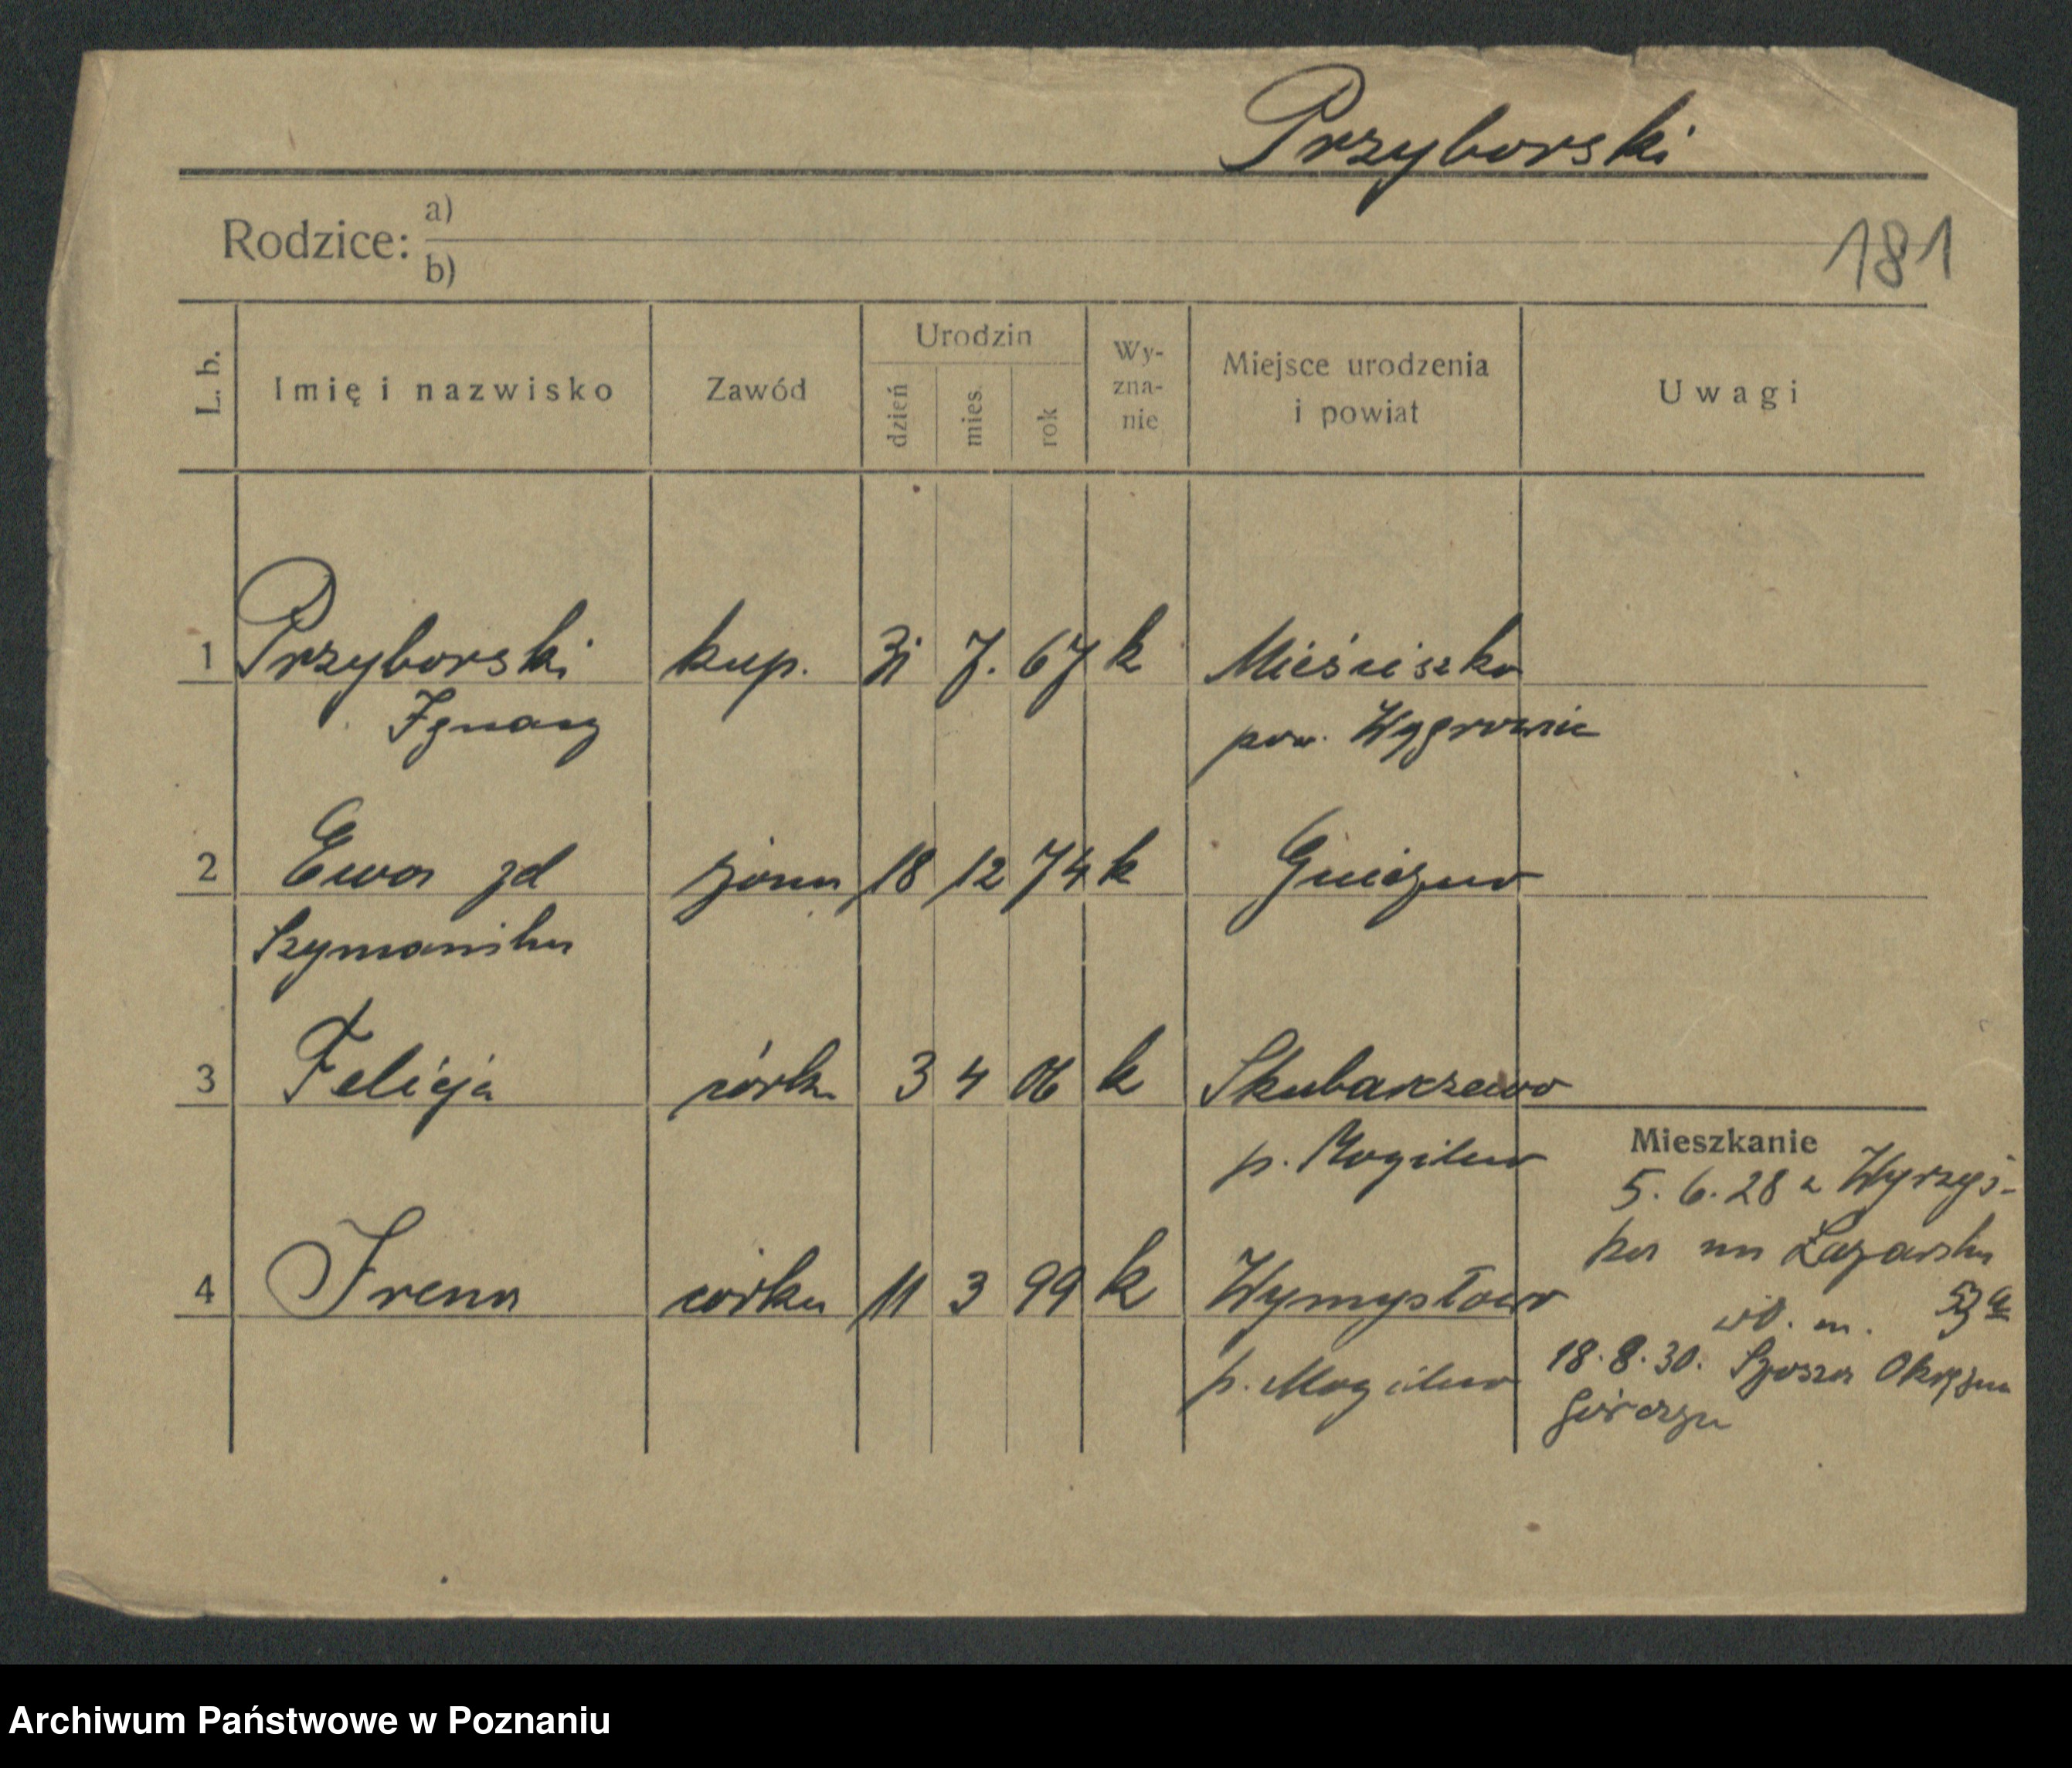 Przyborski
181
Rodzice: a)
b)
L. b. Imię i nazwisko Zawód Urodzin dzień mies. rok Wy-zna-nie Miejsce urodzenia i powiat Uwagi
1 Przyborski kup. 31 7. 67 k Mieścisko
Ignacy pow. Wągrowiec
2 Ewa zd żona 18 12 74 k Gniezno
Szymańska
3 Felicja córka 3 4 06 k Skubarczewo
p. Mogilno
4 Irena córka 11 3 99 k Wymysłowo
p. Mogilno
Mieszkanie
5. 6. 28 z Wyrzys-
ka na Łazarska
wł. m.
18. 8. 30. Szosa Okrężna
Górczyn
Archiwum Państwowe w Poznaniu